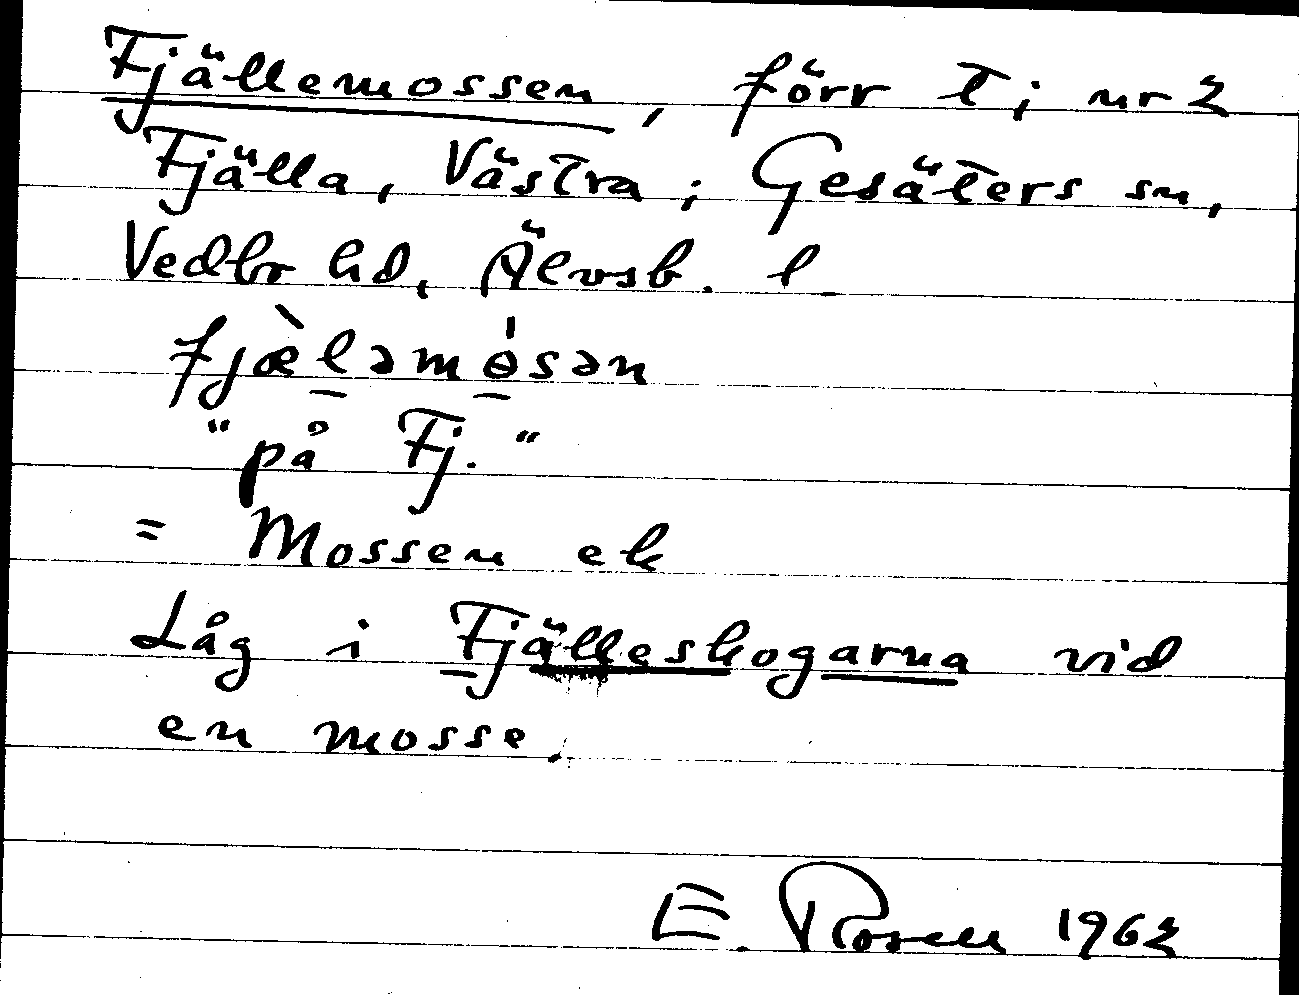 Fjällemossen, förr t; nr 2
Fjälla, Västra; Gesäters sn,
Vedbo hd, Älvsb. l.
fjæ̀l̠əmɵ̠́sən
"på Fj."
= Mossen ek
Låg i Fjälleskogarna vid
en mosse.
E. Rosell 1962